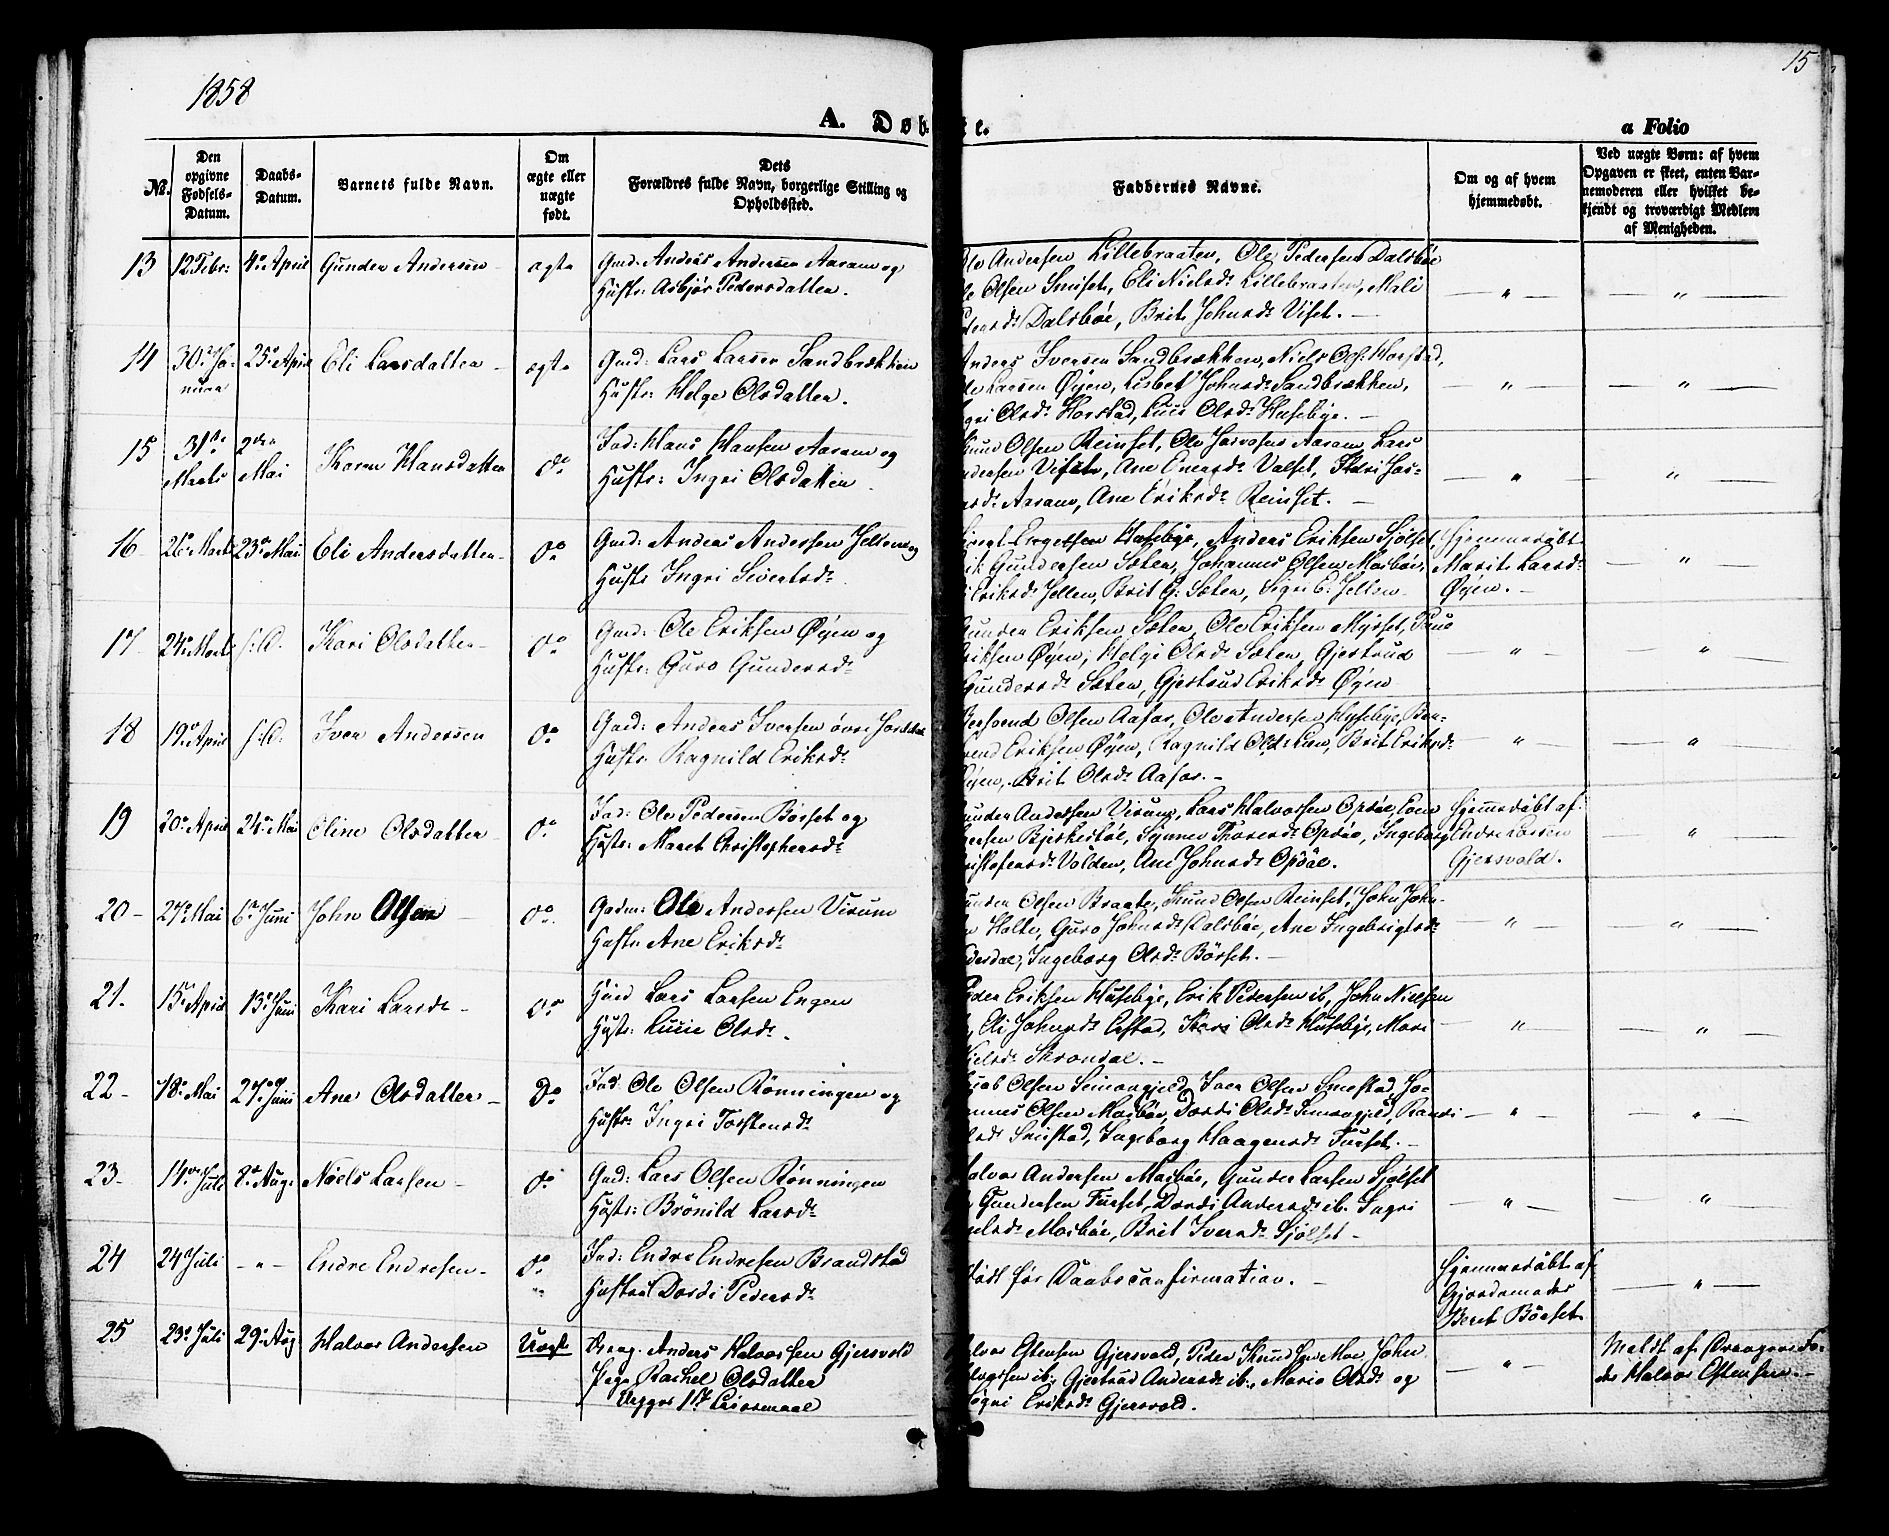 1858
15
A. Døb- te.
a Folio
No.
Den opgivne Fødsels-Datum.
Daabs-Datum.
Barnets fulde Navn.
Om ægte eller uægte født.
Dets Forældres fulde Navn, borgerlige Stilling og Opholdssted.
Faddernes Navne.
Om og af hvem hjemmedøbt.
Ved uægte Børn: af hvem Opgaven er skeet, enten Barnemoderen eller hvilket bekjendt og troværdigt Medlem af Menigheden.
13 12 Febr: 4de April Gunder Andersen ægte Gmd: Anders Andersen Aaram og
Hustr: Asbjør Pedersdatter.
Andersen Lillebraaten, Ole Pedersen Dalsbøe
Olsen Smiset, Eli Nielsd: Lillebraaten, Mali
Dalsbøe, Brit Johnsd: Viset. — " — — " —
14 30 Januar 25de April Eli Larsdatter — ægte Gmd: Lars Larsen Sandbrækken
Hustr: Helge Olsdatter.
Anders Iversen Sandbrækken, Niels Horstad,
Larsen Øyen, Lisbet Johnsd: Sandbrækken,
Olsd: Horstad, Olsd: Husebye. — " — — " —
15 31te Marts 2den Mai Karen Hansdatter do Ind: Hans Hansen Aaram og
Hustr: Ingri Olsdatter.
Knud Olsen Reinset, Ole Aaram, Lars
Andersen Viset, Ane Valset,
Aaram, Ane Eriksd: Reinset. — " — — " —
16 26 Marts 23de Mai Eli Andersdatter do Gmd: Anders Andersen Jelten og
Hustr Ingri Sivertsd:
Husebye, Anders Eriksen Sjølset,
Gundersen Sæten, Johannes Olsen Mosbøe,
Eriksd: Jelten, Brit G: Sæten, Sigri E: Jelten
Hjemmedøbt
Marit Larsd:
Øyen. — — " —
17 24 Marts s: D. Kari Olsdatter — do Gmd: Ole Eriksen Øyen og
Hustr: Guro Gundersd:
Gunder Eriksen Sæten, Ole Eriksen Myrset,
Eriksen Øyen, Helgi Olsd: Sæten, Gjertrud
Gundersd: Sæten, Gjertrud Eriksd: Øyen — " — — " —
18 19 April s: D. Iver Andersen do Gmd: Anders Iversen øvre
Hustr Ragnild Eriksd:
Olsen Aafar, Ole Andersen Husebye,
Eriksen Øyen, Ragnild Olsd: Lien, Brit Eriksd:
Øyen, Brit Olsd: Aafar. — — " — — " —
19 20 April 24 Mai Eline Olsdatter — do Ind: Ole Pedersen Børset og
Hustr: Maret Christophersd:
Andersen Virum, Lars Halvorsen Opdøe,
Bjerkestøl, Synnev Thoresd: Opdøe, Ingeborg
Volden, Ane Johnsd: Opdøe.
Hjemmedøbt af
Endre Larsen
Gjersvold. — " —
20 — 27 Mai 6te Juni John Olsen — do Gadm: Ole Andersen Virum
Hustr Ane Eriksd:
Gunder Olsen Braate, Knud Olsen Reinset, John
Holte, Guro Johnsd: Dalsbøe, Ane Ingebrigtsd:
Ingeborg Olsd: Børset. — — " — — " —
21. 15 April 13 Juni Kari Larsd: — do Huusm Lars Larsen Engen
Hustr: Lucie Olsd:
Peder Eriksen Husebye, Erik Pedersen ib, John Nielsen
Eli Johnsd: Kari Olsd: Husebye, Mari
Nielsd: Skrondal. — — " — — " —
22 — 18 Mai 27 Juni Ane Olsdatter — do Ind: Ole Olsen Rønningen og
Hustr: Ingri Torstensd:
Olsen Iver Olsen Smestad,
Olsen Mosbøe, Dordi Olsd:
Smestad, Ingeborg Haagensd: Furset. — — " — — " —
23 — 14 Juli 8de Aug: Niels Larsen — do Gmd: Lars Olsen Rønningen
Hustr: Brønild Larsd:
Halvor Andersen Mosbøe, Gunder Larsen Sjølset
Gundersen Furset, Dordi Andersd: ib. Ingri
Mosbøe, Brit Iversd: Sjølset — — " — — " —
24 24 Juli — " — Endre Endresen — do Ind: Endre Endresen Brandstad
Hustru Dordi Pedersd:
Død før Daabsconfirmation. —
Hjemmedøbt af
Gjordemoder
Beret Børset — " —
25 23 Juli 29 Aug Halvor Andersen Uægte Ungk. Anders Halvorsen Gjersvold
Pige Rachel Olsdatter
Begges 1ste Leiermaal
Halvor Estensen Gjersvold, Peder Knudsen Moe, John
ib., Gjertrud Andersd: ib., Marie Olsd: og
Eriksd: Gjersvold. — " —
Meldt af
Halvor Estensen. —